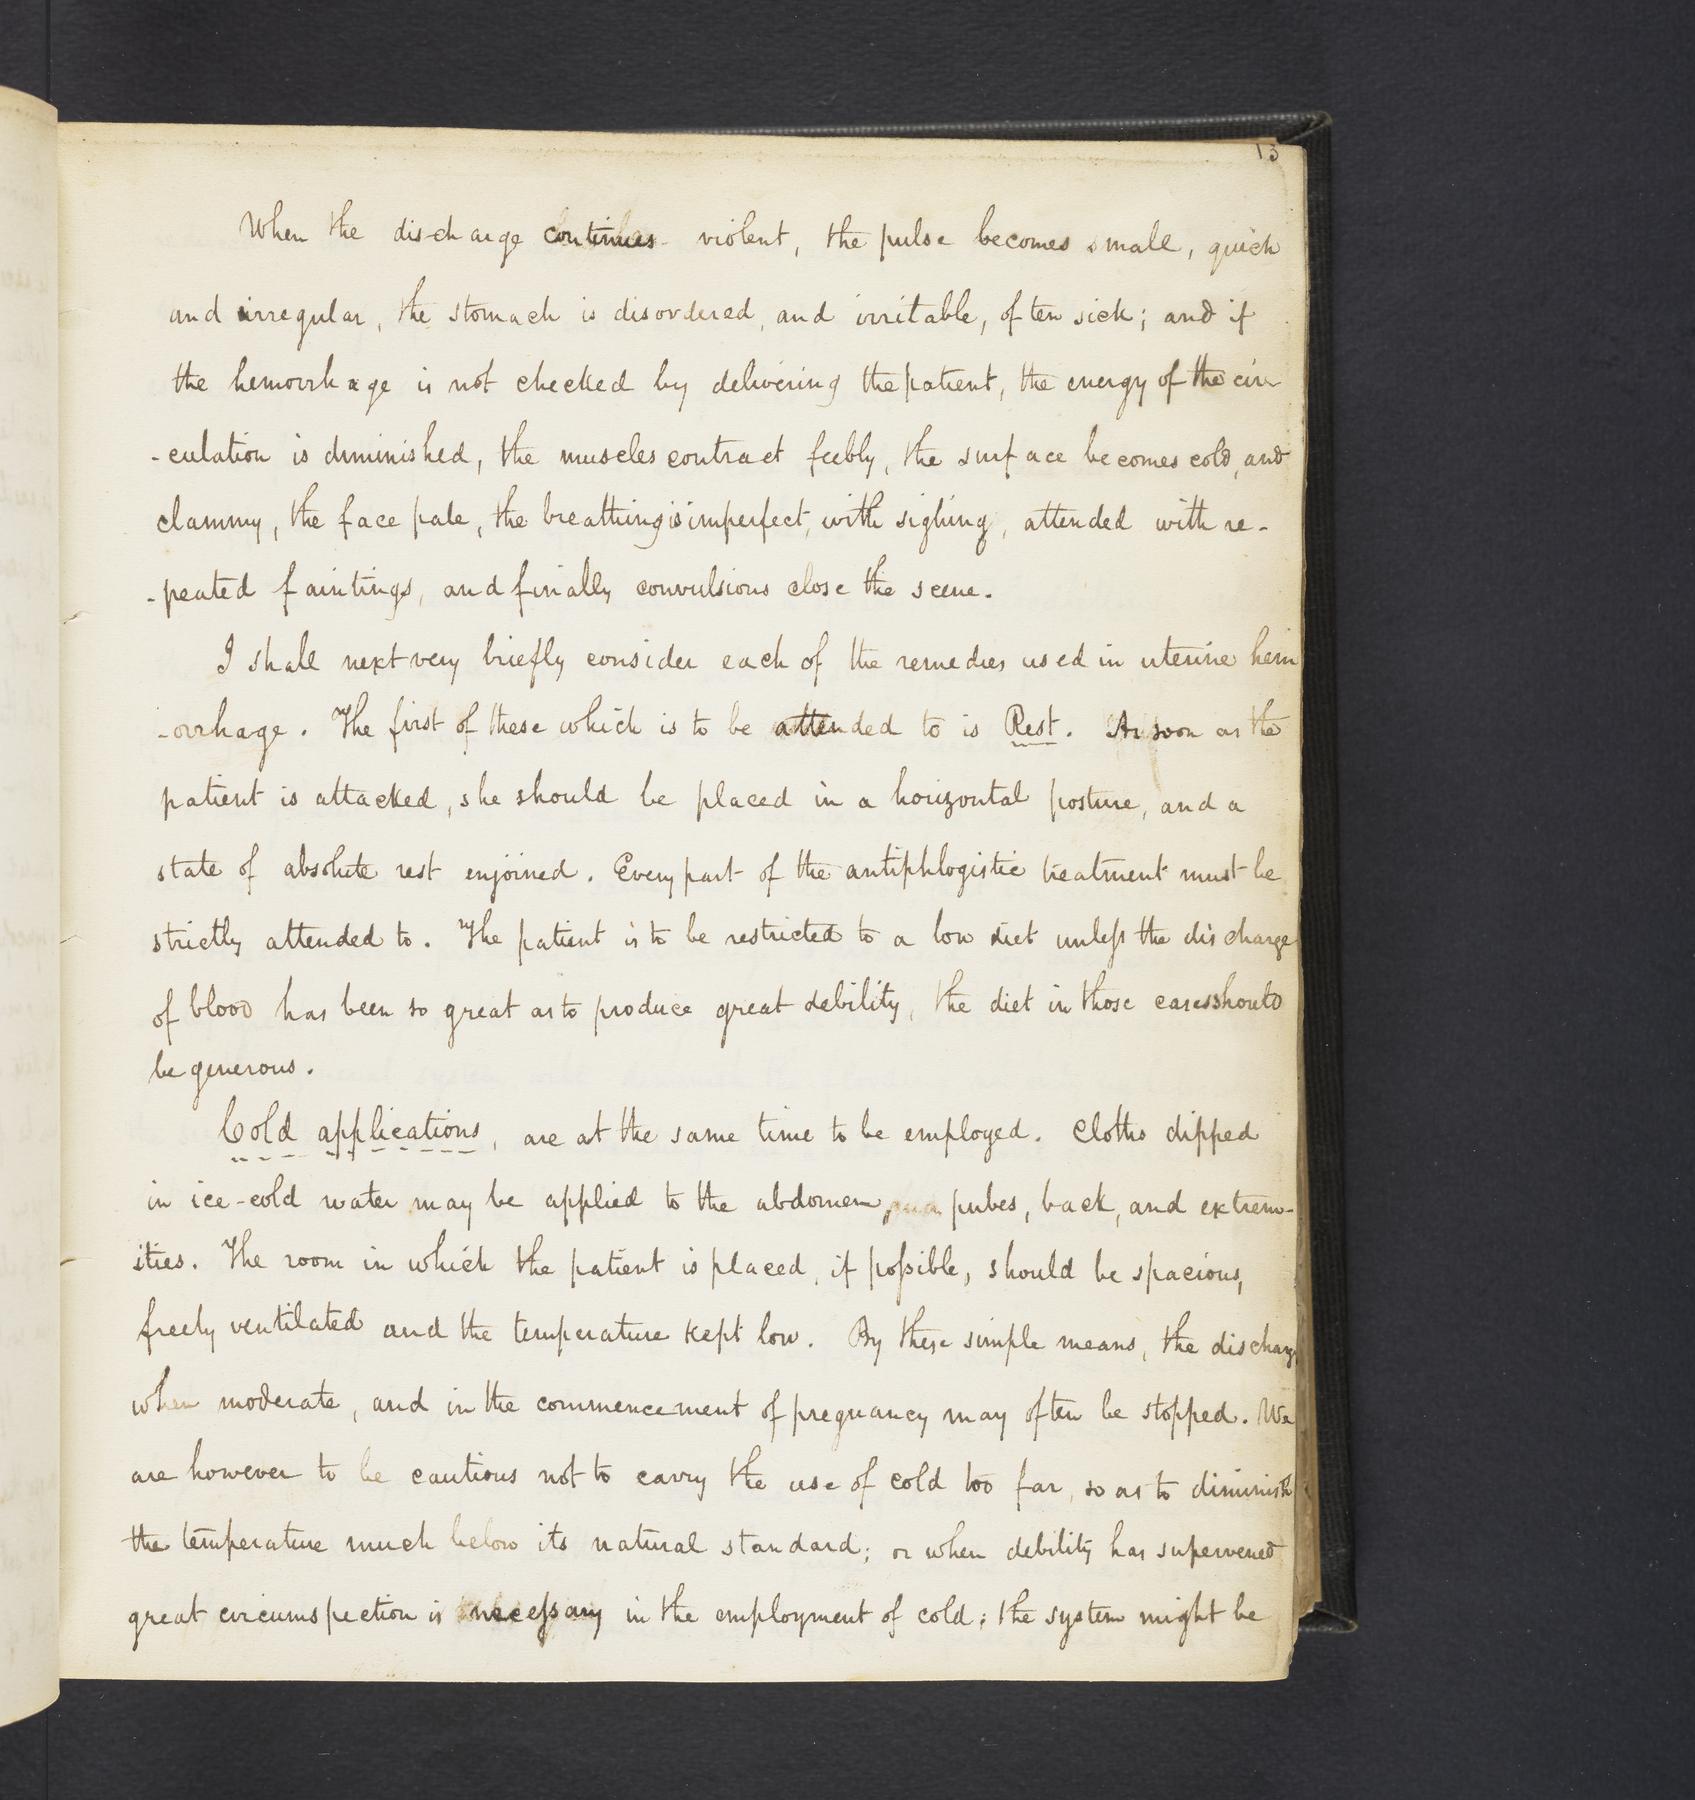 13
When the discharge continues violent, the pulse becomes small, quick
and irregular, the stomach is disordered, and irritable, often sick; and if
the hemorrhage is not checked by delivering the patient, the energy of the cir
-culation is diminished, the muscles contract feebly, the surface becomes cold, and
clammy, the face pale, the breathing is imperfect, with sighing, attended with re-
-peated faintings, and finally convulsions close the scene.
I shall next very briefly consider each of the remedies used in uterine hem
-orrhage. The first of these which is to be attended to is Rest. As soon as the
patient is attacked, she should be placed in a horizontal posture, and a
state of absolute rest enjoined. Every part of the antiphlogistic treatment must be
strictly attended to. The patient is to be restricted to a low diet unleſs the discharge
of blood has been so great as to produce great debility, the diet in those cases should
be generous.
Cold applications, are at the same time to be employed. Cloths dipped
in ice-cold water may be applied to the abdomen, pubes, back, and extrem-
ities. The room in which the patient is placed, if poſsible, should be spacious,
freely ventilated and the temperature kept low. By these simple means, the discharge
when moderate, and in the commencement of pregnancy may often be stopped. We
are however to be cautious not to carry the use of cold too far, so as to diminish
the temperature much below its natural standard; or when debility has supervened
great circumspection is neceſsary in the employment of cold; the system might be